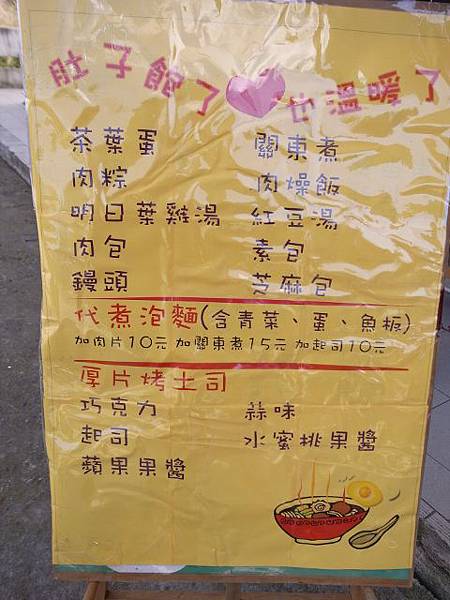 肚子飽了 心溫暖了
茶葉蛋 關東煮
肉粽 肉燥飯
明日葉雞湯 紅豆湯
肉包 素包
饅頭 芝麻包
代煮泡麵(含青菜、蛋、魚板)
加肉片10元 加關東煮15元 加起司10元
厚片烤土司
巧克力 蒜味
起司 水蜜桃果醬
蘋果果醬